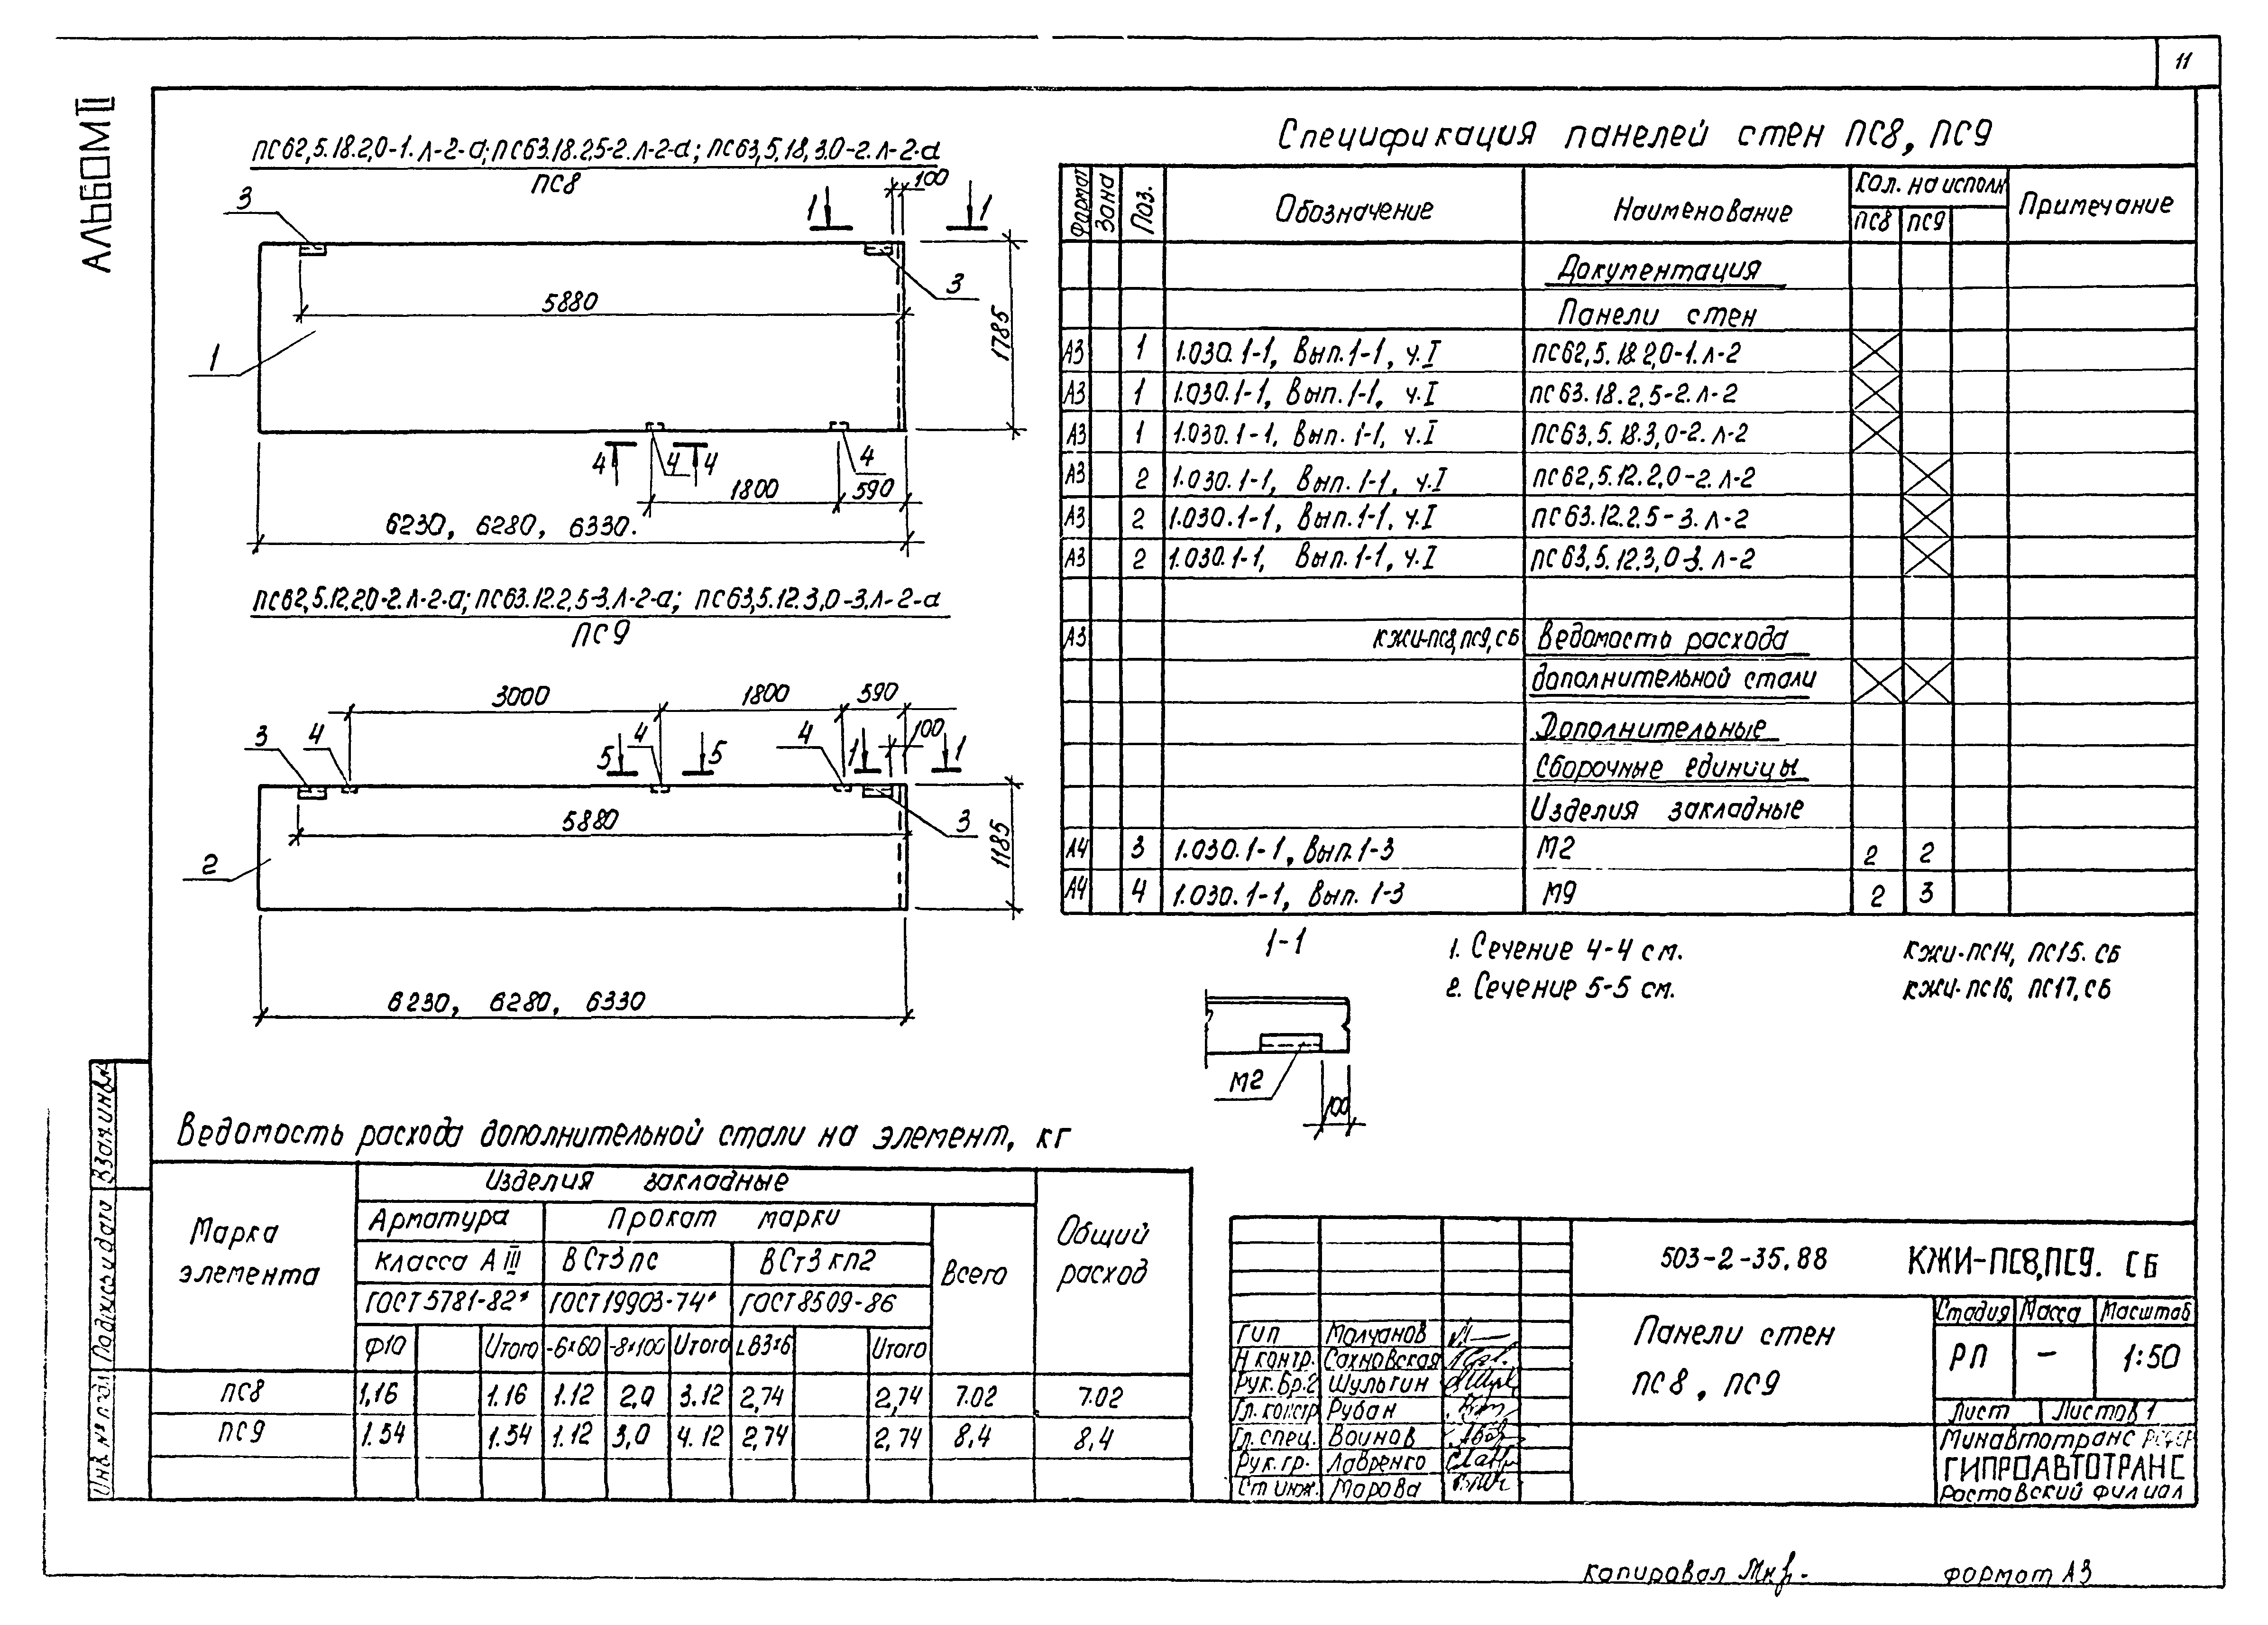 11
АЛЬБОМ II
ПС62,5.18.2,0-1.Л-2-а; ПС63.18.2,5-2.Л-2-а; ПС63,5.18,3.0-2.Л-2-а
ПС8
3
1
1
100
3
5880
1785
1
4
4
4
4
1800
590
6230, 6280, 6330.
ПС62,5.12.2.0-2.Л-2-а; ПС63.12.2,5-3.Л-2-а; ПС63,5.12.3,0-3.Л-2-а
ПС9
3000
1800
590
3
4
5
4
5
4
1
100
1
5880
3
1185
2
6230, 6280, 6330
Спецификация панелей стен ПС8, ПС9
Формат
Зона
Поз.
Обозначение
Наименование
Кол. на исполн
ПС8
ПС9
Примечание
Документация
Панели стен
А3 1 1.030.1-1, Вып.1-1, ч.I ПС62,5.18.2,0-1.Л-2
А3 1 1.030.1-1, Вып.1-1, ч.I ПС63.18.2,5-2.Л-2
А3 1 1.030.1-1, Вып.1-1, ч.I ПС63,5.18.3,0-2.Л-2
А3 2 1.030.1-1, Вып.1-1, ч.I ПС62,5.12.2,0-2.Л-2
А3 2 1.030.1-1, Вып.1-1, ч.I ПС63.12.2,5-3.Л-2
А3 2 1.030.1-1, Вып.1-1, ч.I ПС63,5.12.3,0-3.Л-2
А3 КЖИ-ПС8,ПС9,СБ Ведомость расхода
дополнительной стали
Дополнительные
Сборочные единицы
Изделия закладные
А4 3 1.030.1-1, Вып.1-3 М2 2 2
А4 4 1.030.1-1, Вып. 1-3 М9 2 3
1-1
М2
100
1. Сечение 4-4 см. КЖИ-ПС14, ПС15. СБ
2. Сечение 5-5 см. КЖИ-ПС16, ПС17, СБ
Ведомость расхода дополнительной стали на элемент, кг
Марка элемента
Изделия закладные
Общий расход
Арматура Прокат марки
Всего
класса А III ВСт3пс ВСт3кп2
ГОСТ5781-82* ГОСТ19903-74* ГОСТ8509-86
Ф10 Итого -6×60 -8×100 Итого L83×6 Итого
ПС8 1,16 1.16 1.12 2,0 3.12 2,74 2,74 7.02 7.02
ПС9 1.54 1.54 1.12 3,0 4.12 2,74 2,74 8,4 8,4
Взам инв.№
Подпись и дата
Инв. № подл
503-2-35.88 КЖИ-ПС8,ПС9. СБ
Панели стен
ПС8, ПС9
Стадия Масса Масштаб
РП - 1:50
Лист Листов 1
Минавтотранс РСФСР
ГИПРОАВТОТРАНС
Ростовский филиал
ГИП Молчанов
Н контр. Сахновская
Рук.бр.2 Шульгин
Гл. констр Рубан
Гл. спец. Воинов
Рук. гр. Лавренго
Ст инж. Марова
Копировал
формат А3